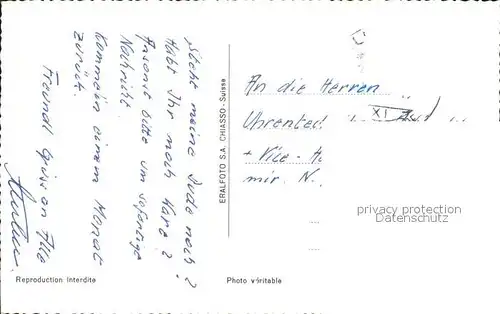 Steht meine Bude noch?
Habt Ihr noch Ware?
Ansonst bitte um sofortige
Nachricht.
Komme in einem Monat
zurück.
Freundl Grüss an Alle
ERALFOTO S.A. CHIASSO - Suisse
An die Herren
XI
+ Vice - 
mir. N.
privacy protection
Datenschutz
Reproduction interdite
Photo véritable